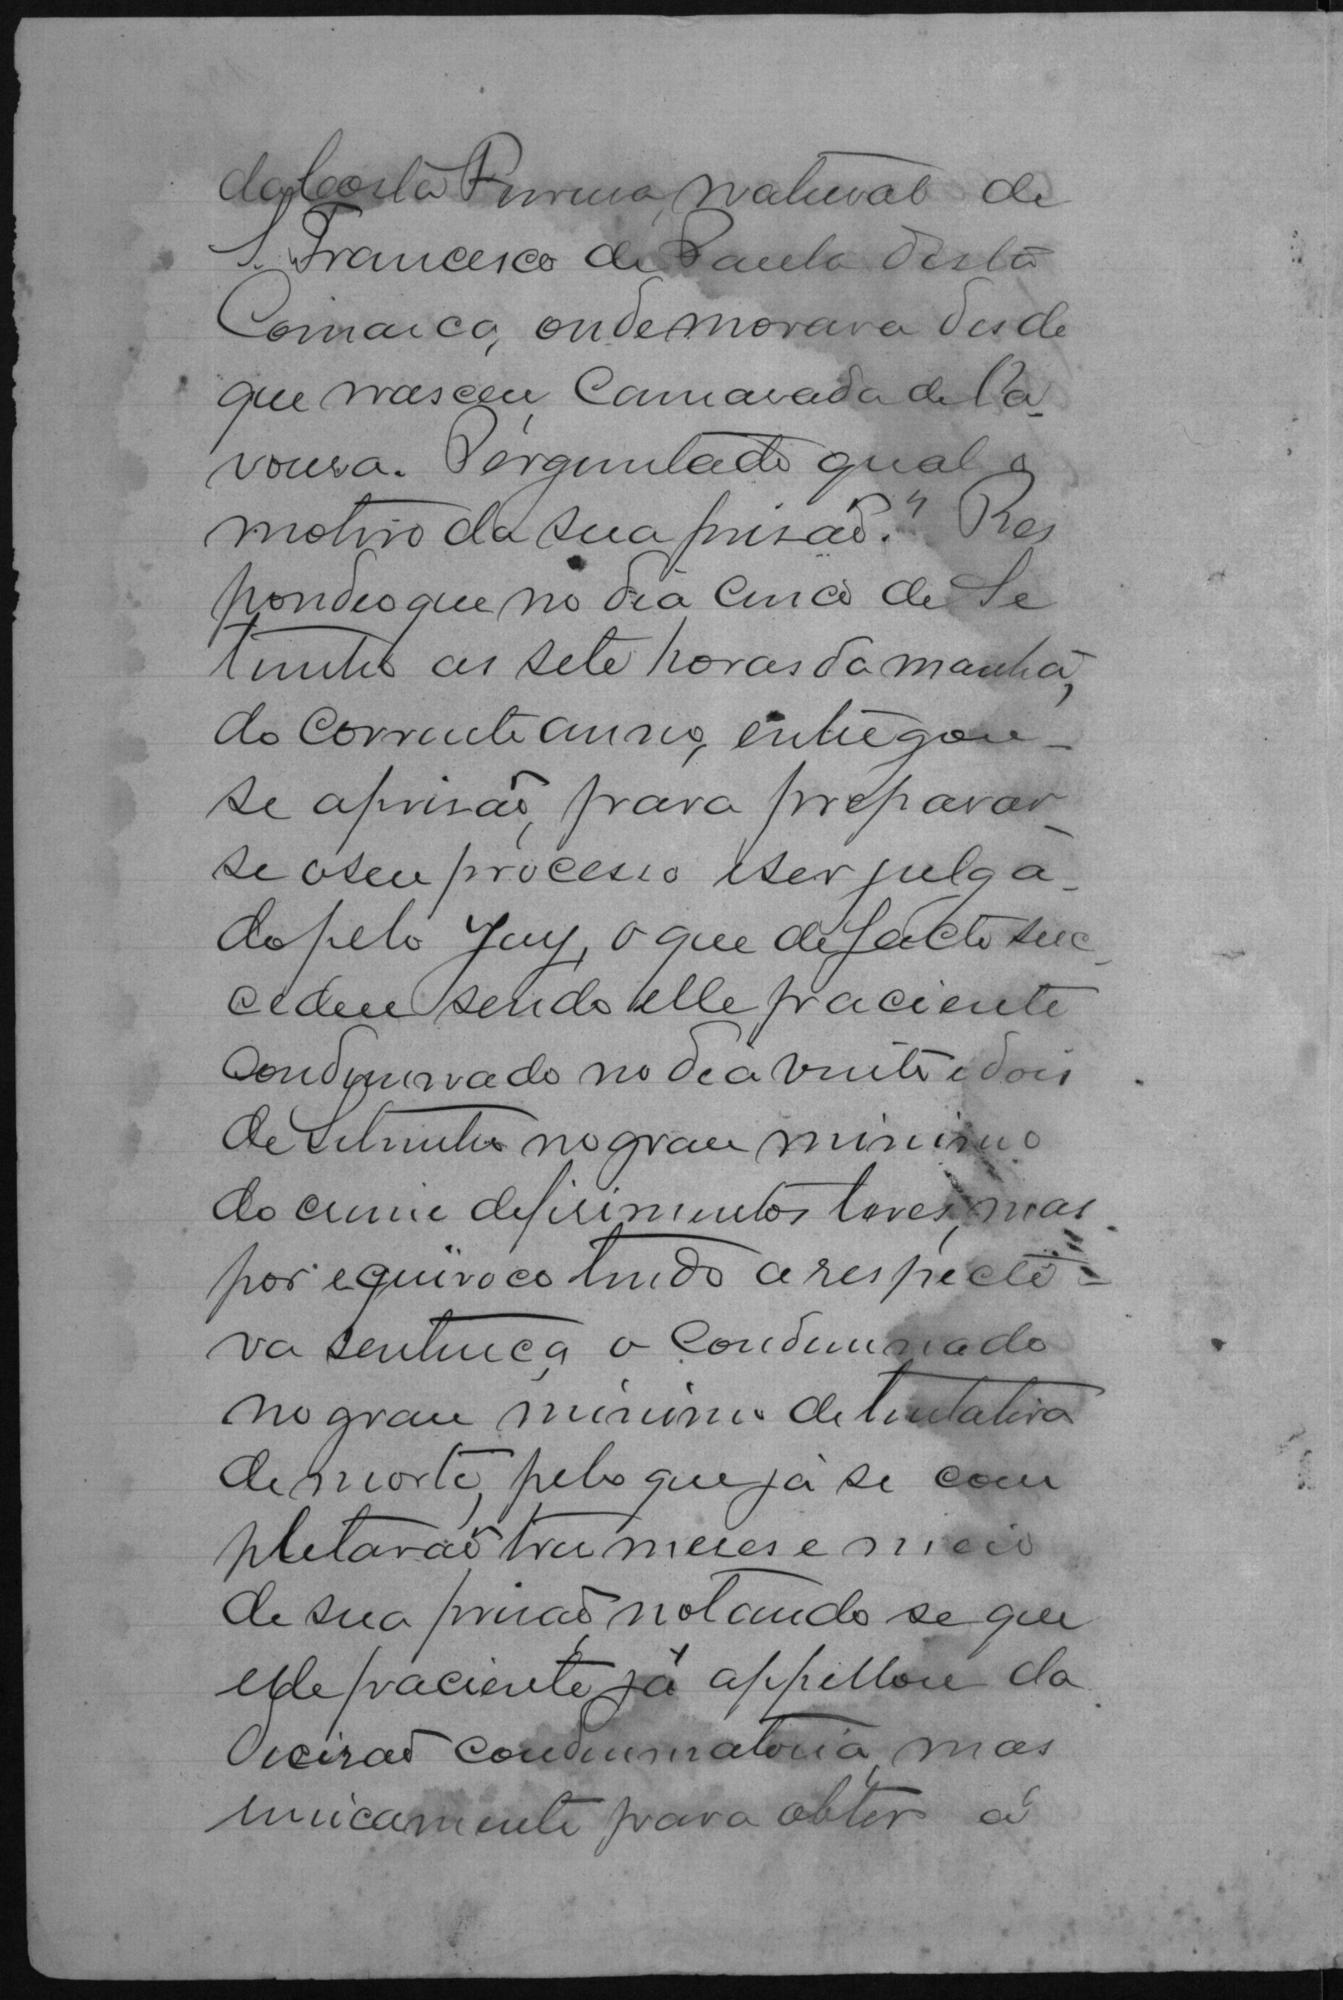 da Costa Pereira, natural de
S. Francisco de Paula desta
Comarca, onde morava desde
que nasceu, Camarada de la-
voura. Perguntado qual o
motivo da sua prisão. " Res
pondeo que no dia cinco de Se
tembro as sete horas da manhã,
do corrente anno, entregou-
se a prisão, para preparar-
se o seu processo e ser julga-
do pelo Jury, o que de facto suc-
cedeu sendo elle paciente
condemnado no dia vinte e dois
de Setembro no grau minimo
do crime de ferimentos leves, mas
por equivoco tendo a respecti-
va sentença o condemnado
no grau minimo de tentativa
de morte, pelo que já se com
pletarão tres meses e meio
de sua prisão, notando se que
elle paciente já appellou da
decisão condemnatoria, mas
unicamente para obter a